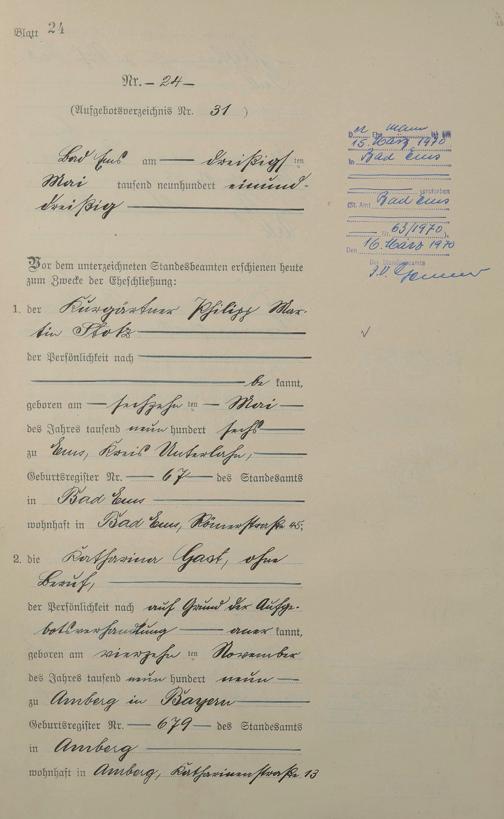 Blatt 24
Nr. 24
(Aufgebotsverzeichnis Nr. 31 )
Bad Ems am dreißigsten
Mai tausend neunhundert einund-
dreißig
Vor dem unterzeichneten Standesbeamten erschienen heute
zum Zwecke der Eheschließung:
1. der Kurgärtner Philipp Mar-
tin Stotz
der Persönlichkeit nach
be kannt,
geboren am sechzehn ten Mai
des Jahres tausend neun hundert sechs
zu Ems, Kreis Unterlahn,
Geburtsregister Nr. 67 des Standesamts
in Bad Ems
wohnhaft in Bad Ems, Römerstraße 45.
2. die Katharina Gast, ohne
Beruf,
der Persönlichkeit nach auf Grund der Aufge-
botsverhandlung aner kannt,
geboren am vierzehn ten November
des Jahres tausend neun hundert neun
zu Amberg in Bayern
Geburtsregister Nr. 679 des Standesamts
in Amberg
wohnhaft in Amberg, Katharinenstraße 13
Ehemann ist am
15. März 1970
in Bad Ems
verstorben
(St. Amt Bad Ems
Nr. 63/1970).
Den 16. März 1970
Der Standesbeamte
I.V.